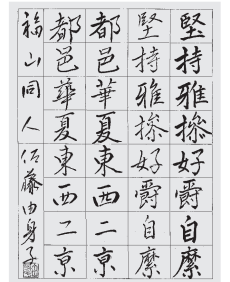 堅持雅操好爵自縻
堅持雅操好爵自縻
都邑華夏東西二京
都邑華夏東西二京
福山同人佐藤由身子